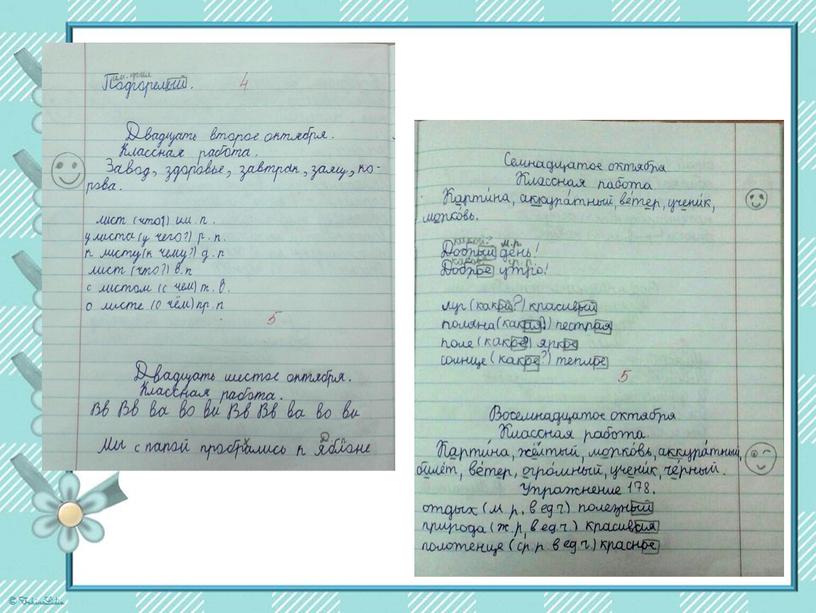 Подгорелый. 4
Двадцать второе октября.
Классная работа.
Завод, здоровье, завтрак, заяц, ко-
рова.
лист (что?) им. п.
у листа (у чего?) р. п.
к листу (к чему?) д. п
лист (что?) в.п
с листом (с чем) т. в.
о листе (о чём) пр. п
5
Двадцать шестое октября.
Классная работа.
Вв Вв ва во ви Вв Вв ва во ви
Мы с папой пробрались к яблоне
Семнадцатое октября
Классная работа
Картина, аккуратный, ветер, ученик,
морковь.
какой? м.р.
Добрый день!
какое? ср. р.
Доброе утро!
луг (какой?) красивый
поляна (какая?) пестрая
поле (какое?) яркое
солнце (какое?) теплое
5
Восемнадцатое октября
Классная работа.
Картина, жёлтый, морковь, аккуратный,
билет, ветер, огромный, ученик, чёрный.
Упражнение 178.
отдых (м. р, в ед ч) полезный
природа (ж. р, в ед ч.) красивая
полотенце (ср. р в ед ч.) красное